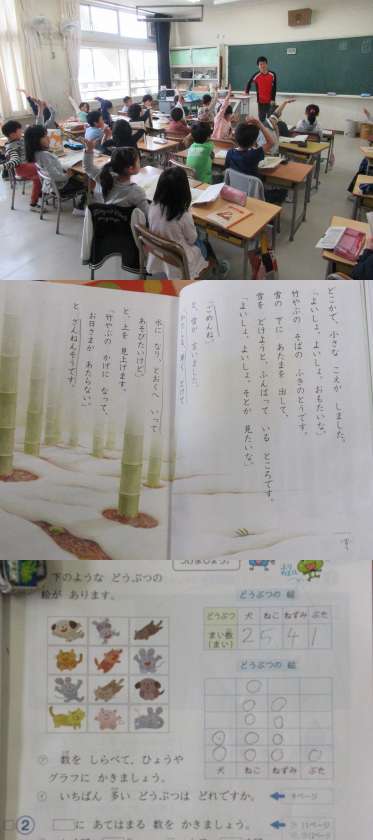 どこかで、小さな こえが しました。
「よいしょ、よいしょ。おもたいな。」
竹やぶの そばの ふきのとうです。
雪の 下に あたまを 出して、
雪を どけようと、ふんばって いる ところです。
「よいしょ、よいしょ。そとが 見たいな。」
「ごめんね。」
と、雪が 言いました。
水に なり、とおくへ いって
あそびたいけど。」
と、上を 見上げます。
「竹やぶの かげに なって、
お日さまが あたらない。」
と、ざんねんそうです。
つけましょう。
下のような どうぶつの
絵が あります。
どうぶつの 絵
どうぶつ 犬 ねこ ねずみ ぶた
まい数(まい) 2 5 4 1
どうぶつの 絵
犬 ねこ ねずみ ぶた
㋐ 数を しらべて、ひょうや
グラフに かきましょう。
㋑ いちばん 多い どうぶつは どれですか。
9ページ
② □に あてはまる 数を かきましょう。
11ページ
12ページ